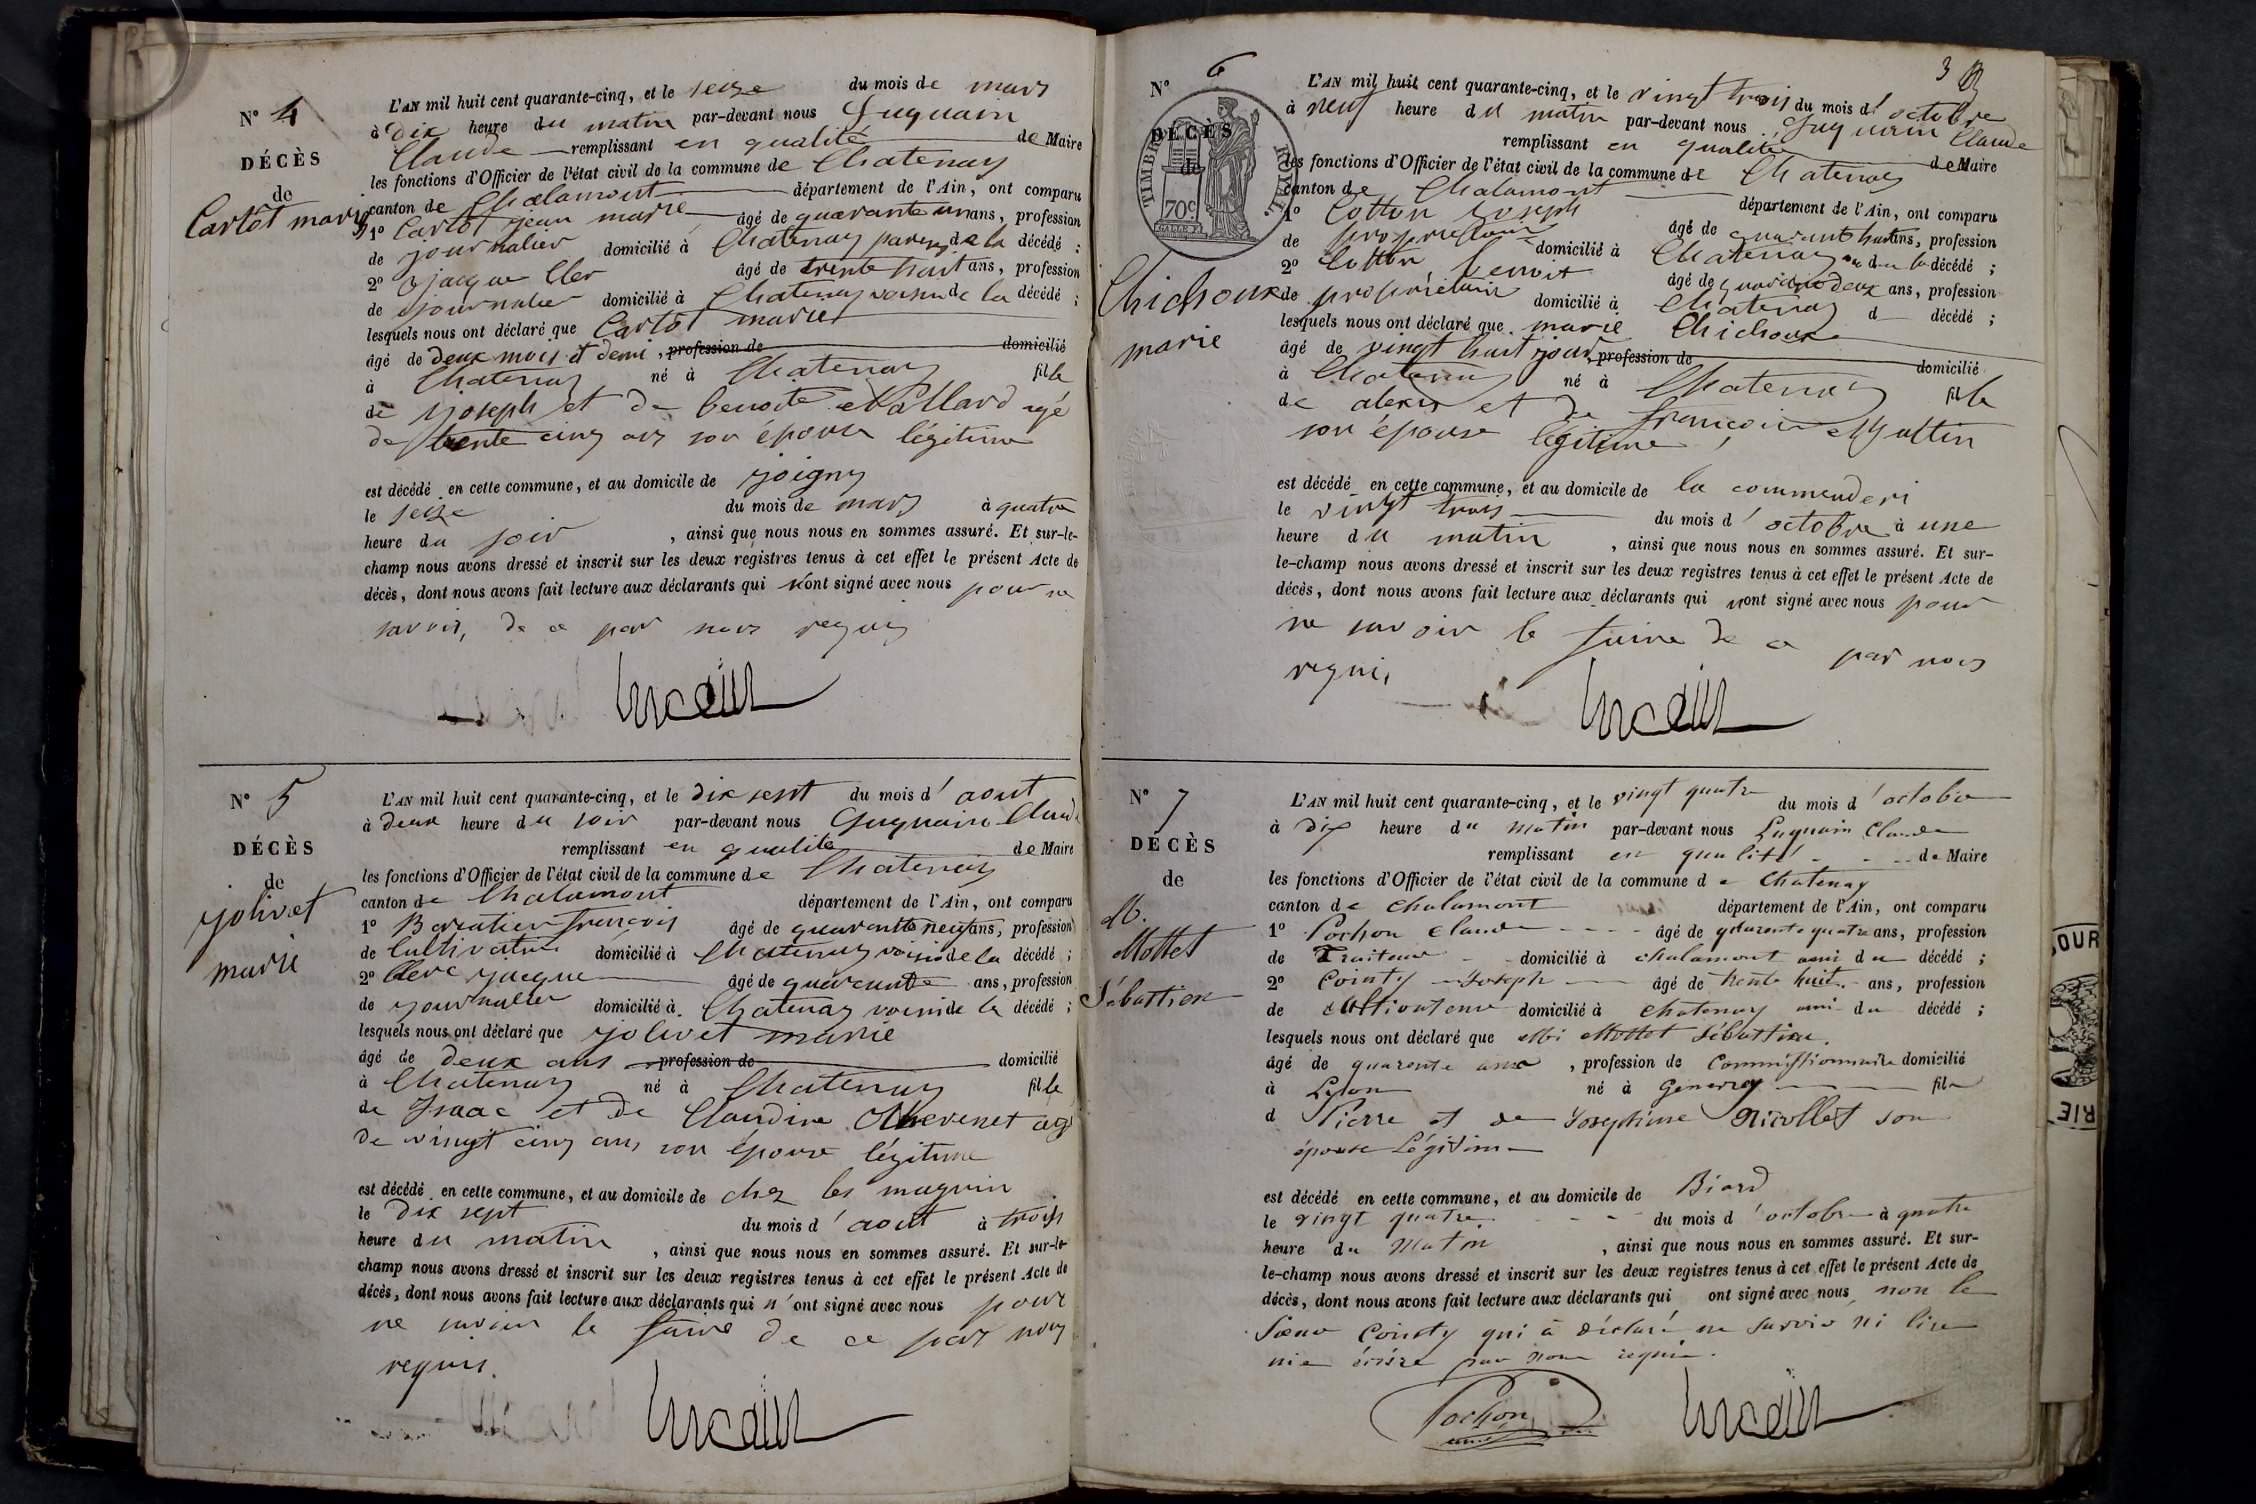 N° 4
DÉCÈS
de
Carlot marie
L'AN mil huit cent quarante-cinq, et le seize du mois de mars
à dix heure du matin par-devant nous Luquain
Claude remplissant en qualité de Maire
les fonctions d'Officier de l'état civil de la commune de Chatenay
canton de Chalamont département de l'Ain, ont comparu
1° Carlot jean marie âgé de quarante un ans, profession
de journalier domicilié à Chatenay de la décédé ;
2° jacque Cler âgé de trente huit ans, profession
de journalier domicilié à Chatenay voisin de la décédé ;
lesquels nous ont déclaré que Carlot marie
âgé de deux mois et demi, profession de domicilié
à Chatenay né à Chatenay fille
de joseph et de benoite Vallard agé
de trente cinq ans son épouse légitime
est décédé en cette commune, et au domicile de joigny
le seize du mois de mars à quatre
heure du soir , ainsi que nous nous en sommes assuré. Et sur-le-
champ nous avons dressé et inscrit sur les deux régistres tenus à cet effet le présent Acte de
décès, dont nous avons fait lecture aux déclarants qui n'ont signé avec nous pour ne
savoir, de ce par nous requis
N° 5
DÉCÈS
de
jolivet
marie
L'AN mil huit cent quarante-cinq, et le dix sept du mois d'aout
à deux heure du soir par-devant nous Luquain Claude
remplissant en qualité de Maire
les fonctions d'Officier de l'état civil de la commune de Chatenay
canton de Chalamont département de l'Ain, ont comparu
1° françois âgé de quarante neuf ans, profession
de Cultivateur domicilié à Chatenay voisin de la décédé ;
2° Clerc jacque âgé de quarante ans, profession
de journalier domicilié à Chatenay voisin de la décédé ;
lesquels nous ont déclaré que jolivet marie
âgé de deux ans profession de domicilié
à Chatenay né à Chatenay fille
de Isaac et de Claudine Chevenet agé
de vingt cinq ans, son épouse légitime
est décédé en cette commune, et au domicile de chez les maguin
le dix sept du mois d'aout à trois
heure du matin , ainsi que nous nous en sommes assuré. Et sur-le-
champ nous avons dressé et inscrit sur les deux registres tenus à cet effet le présent Acte de
décès, dont nous avons fait lecture aux déclarants qui n'ont signé avec nous pour
ne savoir le faire de ce par nous
requis.
3
N° 6
DÉCÈS
de
TIMBRE ROYAL
70c
Chichoux
marie
L'AN mil huit cent quarante-cinq, et le vingt trois du mois d'octobre
à neuf heure du matin par-devant nous Luquain Claude
remplissant en qualité de Maire
les fonctions d'Officier de l'état civil de la commune de Chatenay
canton de Chalamont département de l'Ain, ont comparu
1° Cotton joseph âgé de quarante huit ans, profession
de propriétaire domicilié à Chatenay de la décédé ;
2° Cotton benoit âgé de quarante deux ans, profession
de propriétaire domicilié à Chatenay d décédé ;
lesquels nous ont déclaré que marie Chichoux
âgé de vingt huit jour, profession de domicilié
à Chatenay né à Chatenay fille
de alexis et de françoise Muttin
son épouse légitime
est décédé en cette commune, et au domicile de la commanderi
le vingt trois du mois d'octobre à une
heure du matin , ainsi que nous nous en sommes assuré. Et sur-
le-champ nous avons dressé et inscrit sur les deux registres tenus à cet effet le présent Acte de
décès, dont nous avons fait lecture aux déclarants qui n'ont signé avec nous pour
ne savoir le faire de ce par nous
requi,
N° 7
DÉCÈS
de
M.
Mottet
Sébastien
L'AN mil huit cent quarante-cinq, et le vingt quatre du mois d'octobre
à dix heure du matin par-devant nous Luquain Claude
remplissant en qualité de Maire
les fonctions d'Officier de l'état civil de la commune de Chatenay
canton de Chalamont département de l'Ain, ont comparu
1° Pochon Claude âgé de quarente quatre ans, profession
de Traiteur domicilié à chalamont ami du décédé ;
2° Cointy Joseph âgé de trente huit ans, profession
de Cultivateur domicilié à chatenay ami du décédé ;
lesquels nous ont déclaré que Mottet Sébastien.
âgé de quarente ans , profession de Commissionnaire domicilié
à Lyon né à fils
d Pierre et de Josephine Nicollet son
épouse Légitime
est décédé en cette commune, et au domicile de Biard
le vingt quatre du mois d'octobre à quatre
heure du Matin , ainsi que nous nous en sommes assuré. Et sur-
le-champ nous avons dressé et inscrit sur les deux registres tenus à cet effet le présent Acte de
décès, dont nous avons fait lecture aux déclarants qui ont signé avec nous, non le
Sieur Cointy qui à déclaré ne savoir ni lire
nie écrire par nous requis.
Pochon